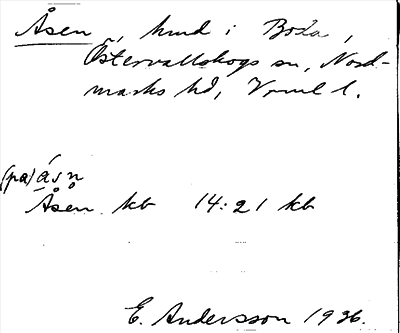 Åsen, hmd i Boda,
Östervallskogs sn, Nord-
marks hd, Vrml l.
(pa) ásn̥
Åsen kb 14:21 kb
E. Andersson 1936.